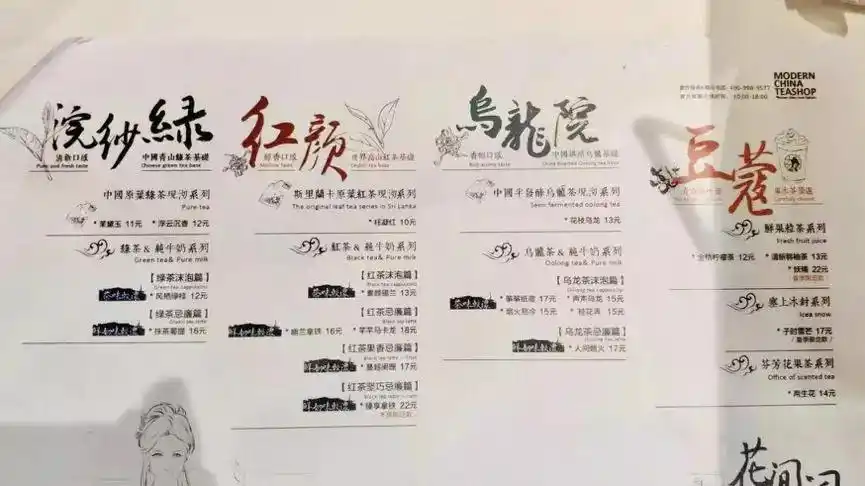 MODERN
CHINA
TEASHOP
400-998-9577
10:00-18:00
浣纱綠
清新口感
Pure and fresh taste
中國青山綠茶基礎
Chinese green tea base
中國原葉綠茶現沏系列
Pure tea
* 茉黛玉 11元 * 浮云沉香 12元
綠茶& 純牛奶系列
Green tea& Pure milk
【绿茶沫泡篇】
* 风栖绿桂 12元
【绿茶忌廉篇】
* 抹茶菊提 16元
红颜
醇香口感
世界高山紅茶基礎
斯里蘭卡原葉紅茶現沏系列
The original leaf tea series in Sri Lanka
* 枉凝红 10元
紅茶& 純牛奶系列
Black tea& Pure milk
【红茶沫泡篇】
* 素颜锡兰 13元
【红茶忌廉篇】
* 幽兰拿铁 16元 * 芊芊马卡龙 18元
【红茶果香忌廉篇】
* 蔓越阑珊 17元
【红茶坚巧忌廉篇】
* 臻享拿铁 22元
烏龍院
香韵口感
中國半發酵烏龍茶現沏系列
Semi fermented oolong tea
* 花枝乌龙 13元
烏龍茶& 純牛奶系列
Oolong tea& Pure milk
【乌龙茶沫泡篇】
* 筝筝纸鸢 17元 * 声声乌龙 15元
* 烟火易冷 15元 * 桂花弄 15元
【乌龙茶忌廉篇】
* 人间烟火 17元
豆蔻
鮮果粒茶系列
Fresh fruit juice
* 金桔柠檬茶 12元 * 满杯韩柚茶 13元
* 妖精 22元
塞上冰封系列
Icea snow
* 子时雪芒 17元
芬芳花果茶系列
Office of scented tea
* 两生花 14元
花间